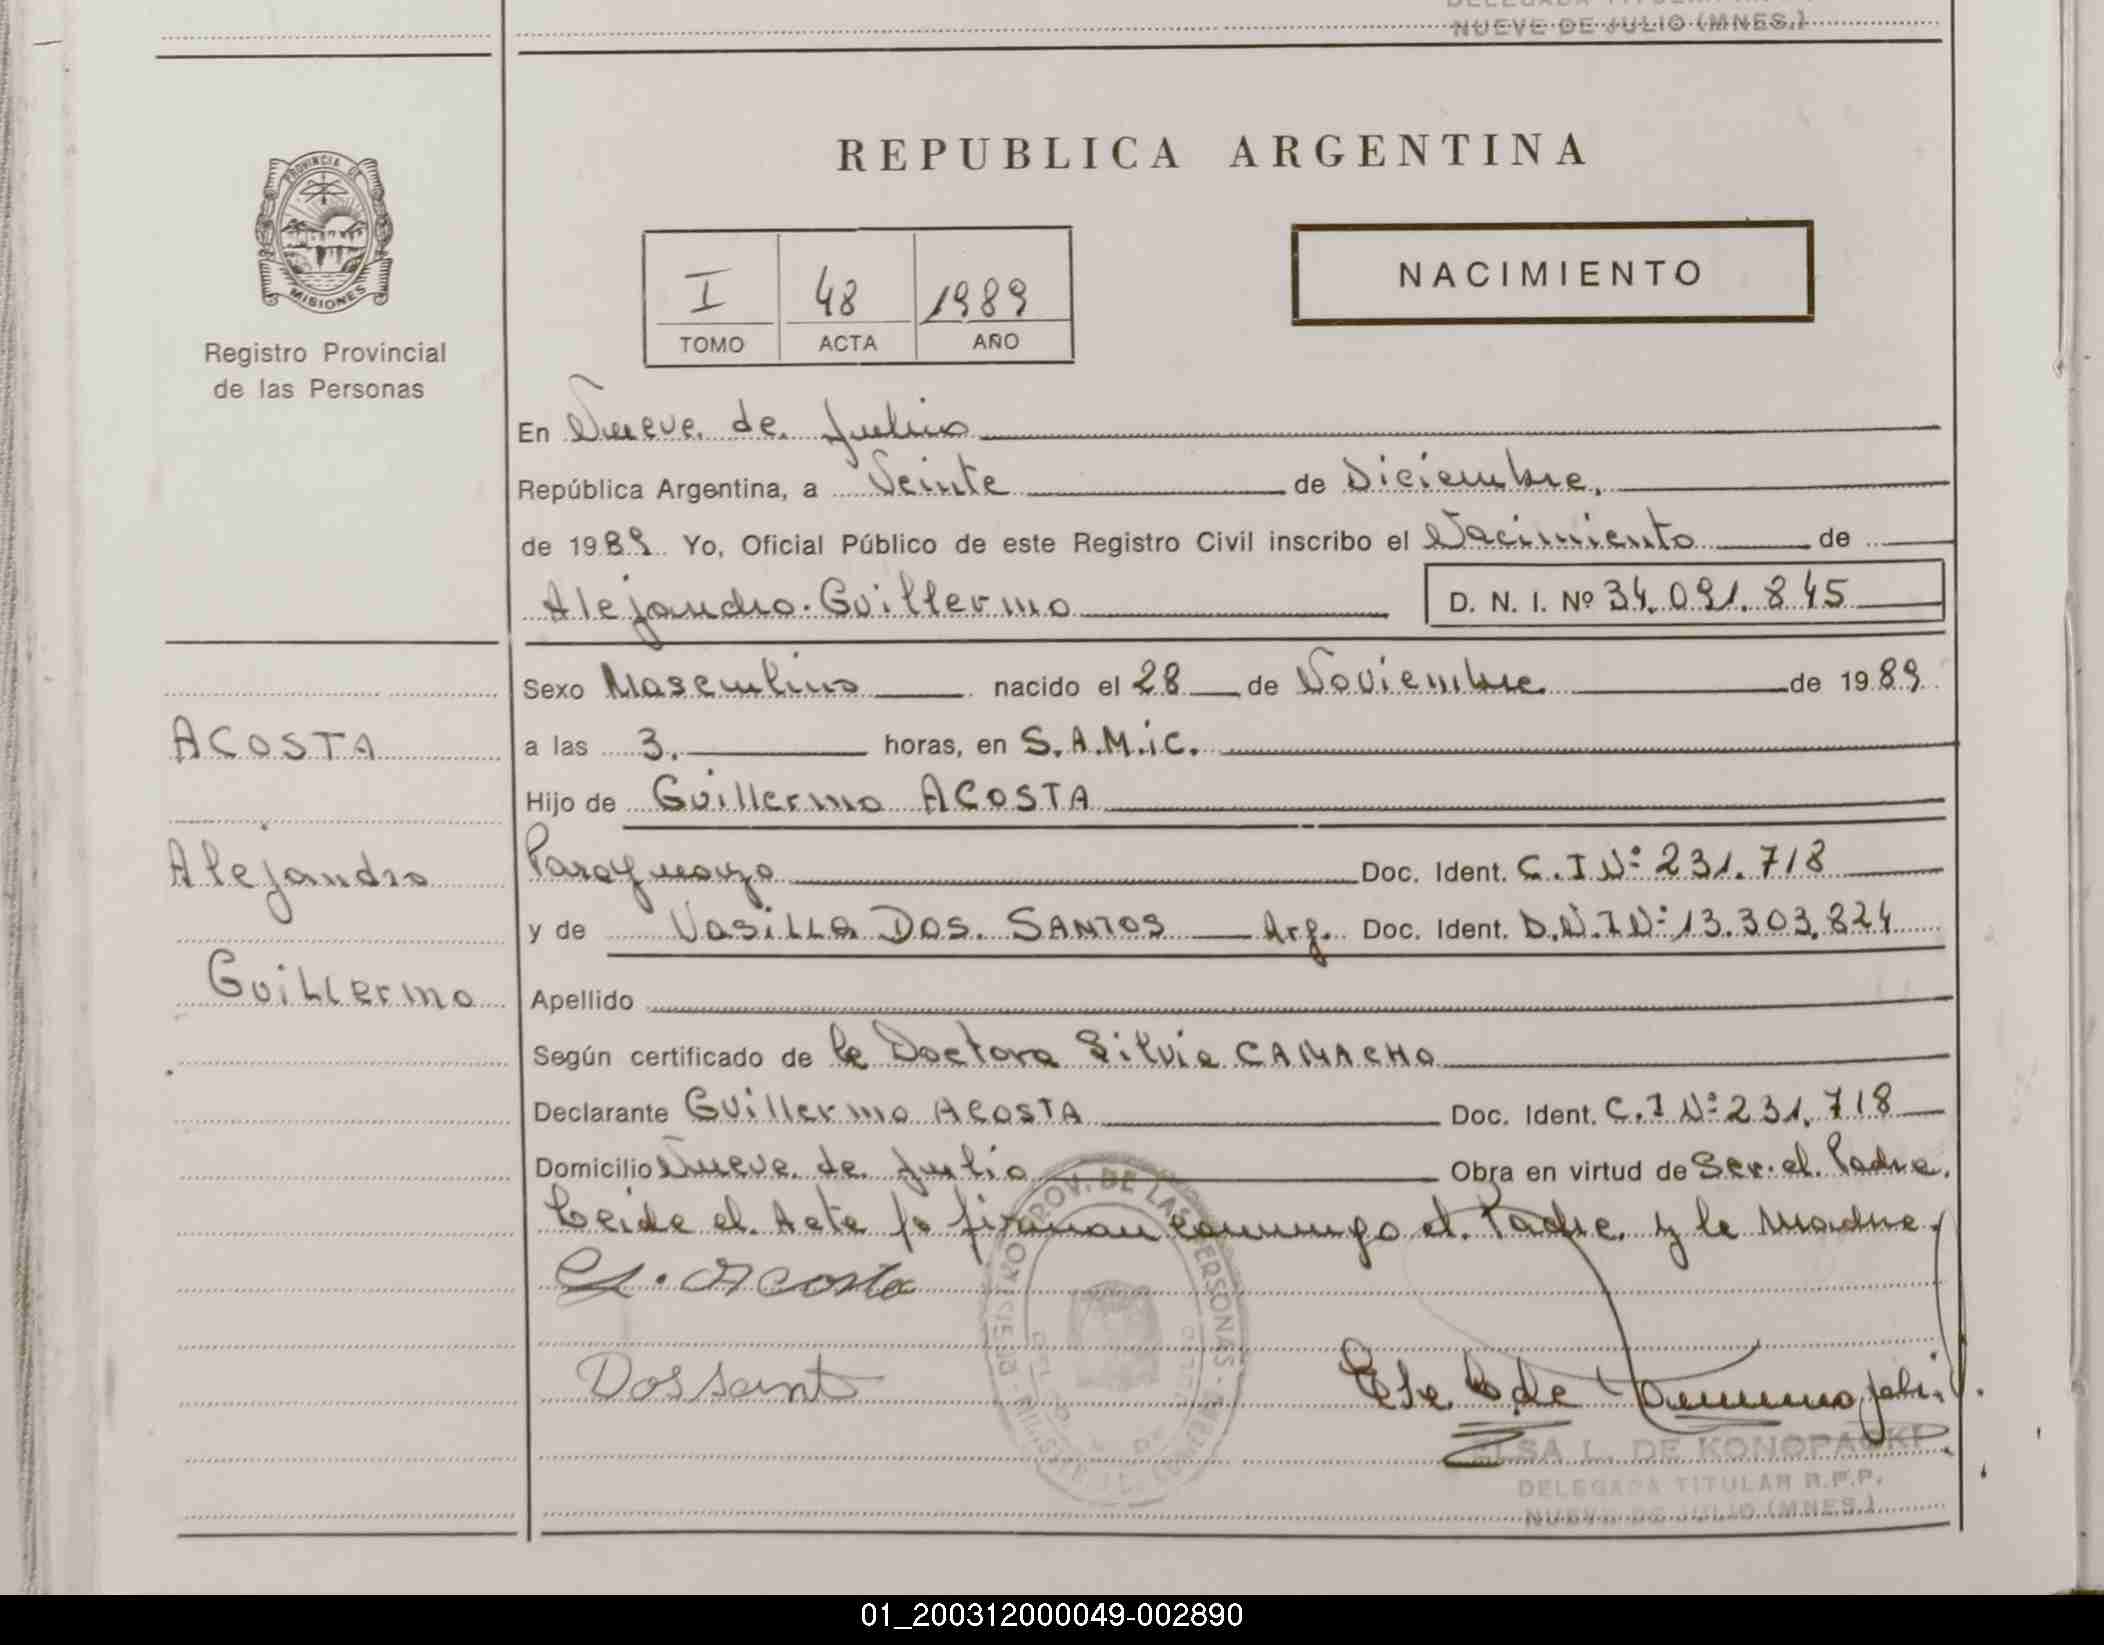 NUEVE DE JULIO (MNES.)
PROVINCIA DE
MISIONES
Registro Provincial
de las Personas
REPUBLICA ARGENTINA
I 48 1989
TOMO ACTA AÑO
NACIMIENTO
En Nueve de Julio
República Argentina, a Veinte de Diciembre.
de 1989. Yo, Oficial Público de este Registro Civil inscribo el Nacimiento de
Alejandro Guillermo D. N. I. Nº 34.091.845
Sexo Masculino nacido el 28 de Noviembre de 1989.
ACOSTA
a las 3. horas, en S.A.M.i.C.
Hijo de Guillermo ACOSTA
Alejandro
Paraguayo Doc. Ident. C.I Nº 231.718
y de VASILLA DOS SANTOS Arg. Doc. Ident. D.N.I Nº 13.303.824
Guillermo
Apellido
Según certificado de la Doctora Silvia CAMACHO
Declarante Guillermo ACOSTA Doc. Ident. C.I Nº 231.718
Domicilio Nueve de Julio Obra en virtud de Ser el Padre.
Leida el Acta la firman conmigo el Padre y la Madre.
G. Acosta
PROV. DE LAS PERSONAS
Dos sant
ELSA L. DE KONOPACKI
DELEGADA TITULAR R.P.P.
NUEVE DE JULIO (MNES.)
01_200312000049-002890